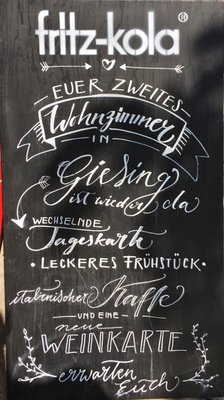 fritz-kola®
EUER ZWEITES
Wohnzimmer
IN
Giesing
ist wieder da
WECHSELNDE
Tageskarte
• LECKERES FRÜHSTÜCK •
italienischer Kaffe
UND EINE
neue
WEINKARTE
erwarten
Euch